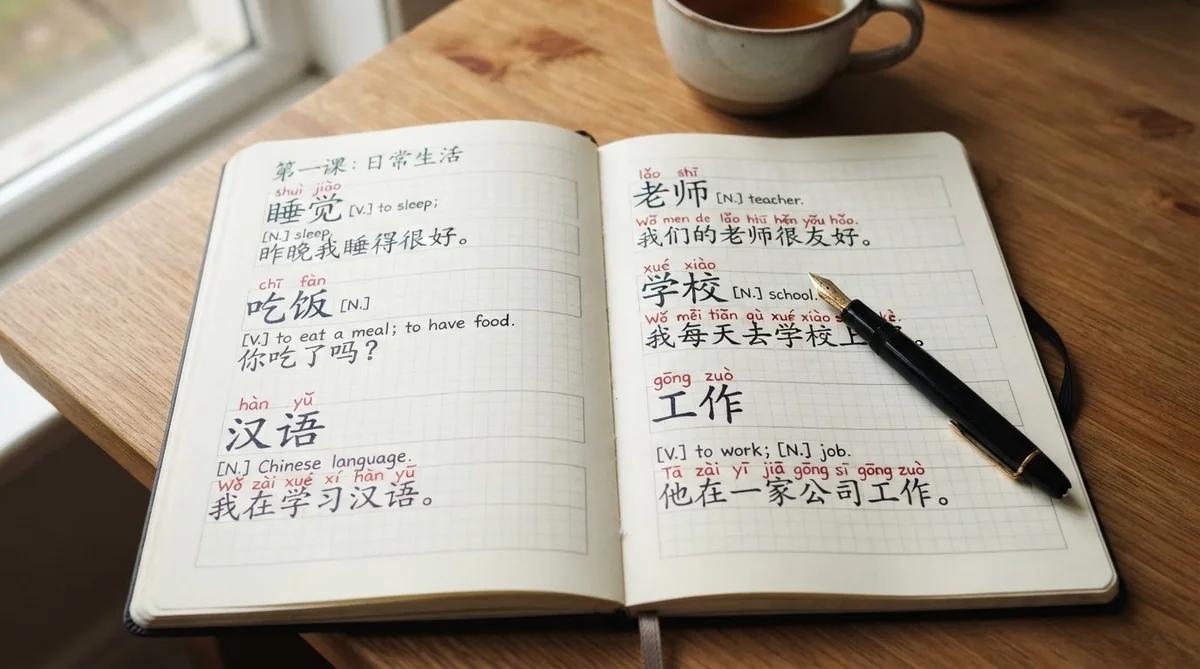 第一课：日常生活
shuì jiào
睡觉 [V.] to sleep;
[N.] sleep.
昨晚我睡得很好。
chī fàn
吃饭 [N.]
[V.] to eat a meal; to have food.
你吃了吗？
hàn yǔ
汉语
[N.] Chinese language.
Wǒ zài xué xí hàn yǔ
我在学习汉语。
lǎo shī
老师 [N.] teacher.
Wǒ men de lǎo hīī hěn yǒu hǒo.
我们的老师很友好。
xué xiào
学校 [N.] school.
Wǒ měi tiān qù xué xiào kè.
我每天去学校上。
gōng zuò
工作
[V.] to work; [N.] job.
Tā zài yī jiā gōng sī gōng zuò
他在一家公司工作。